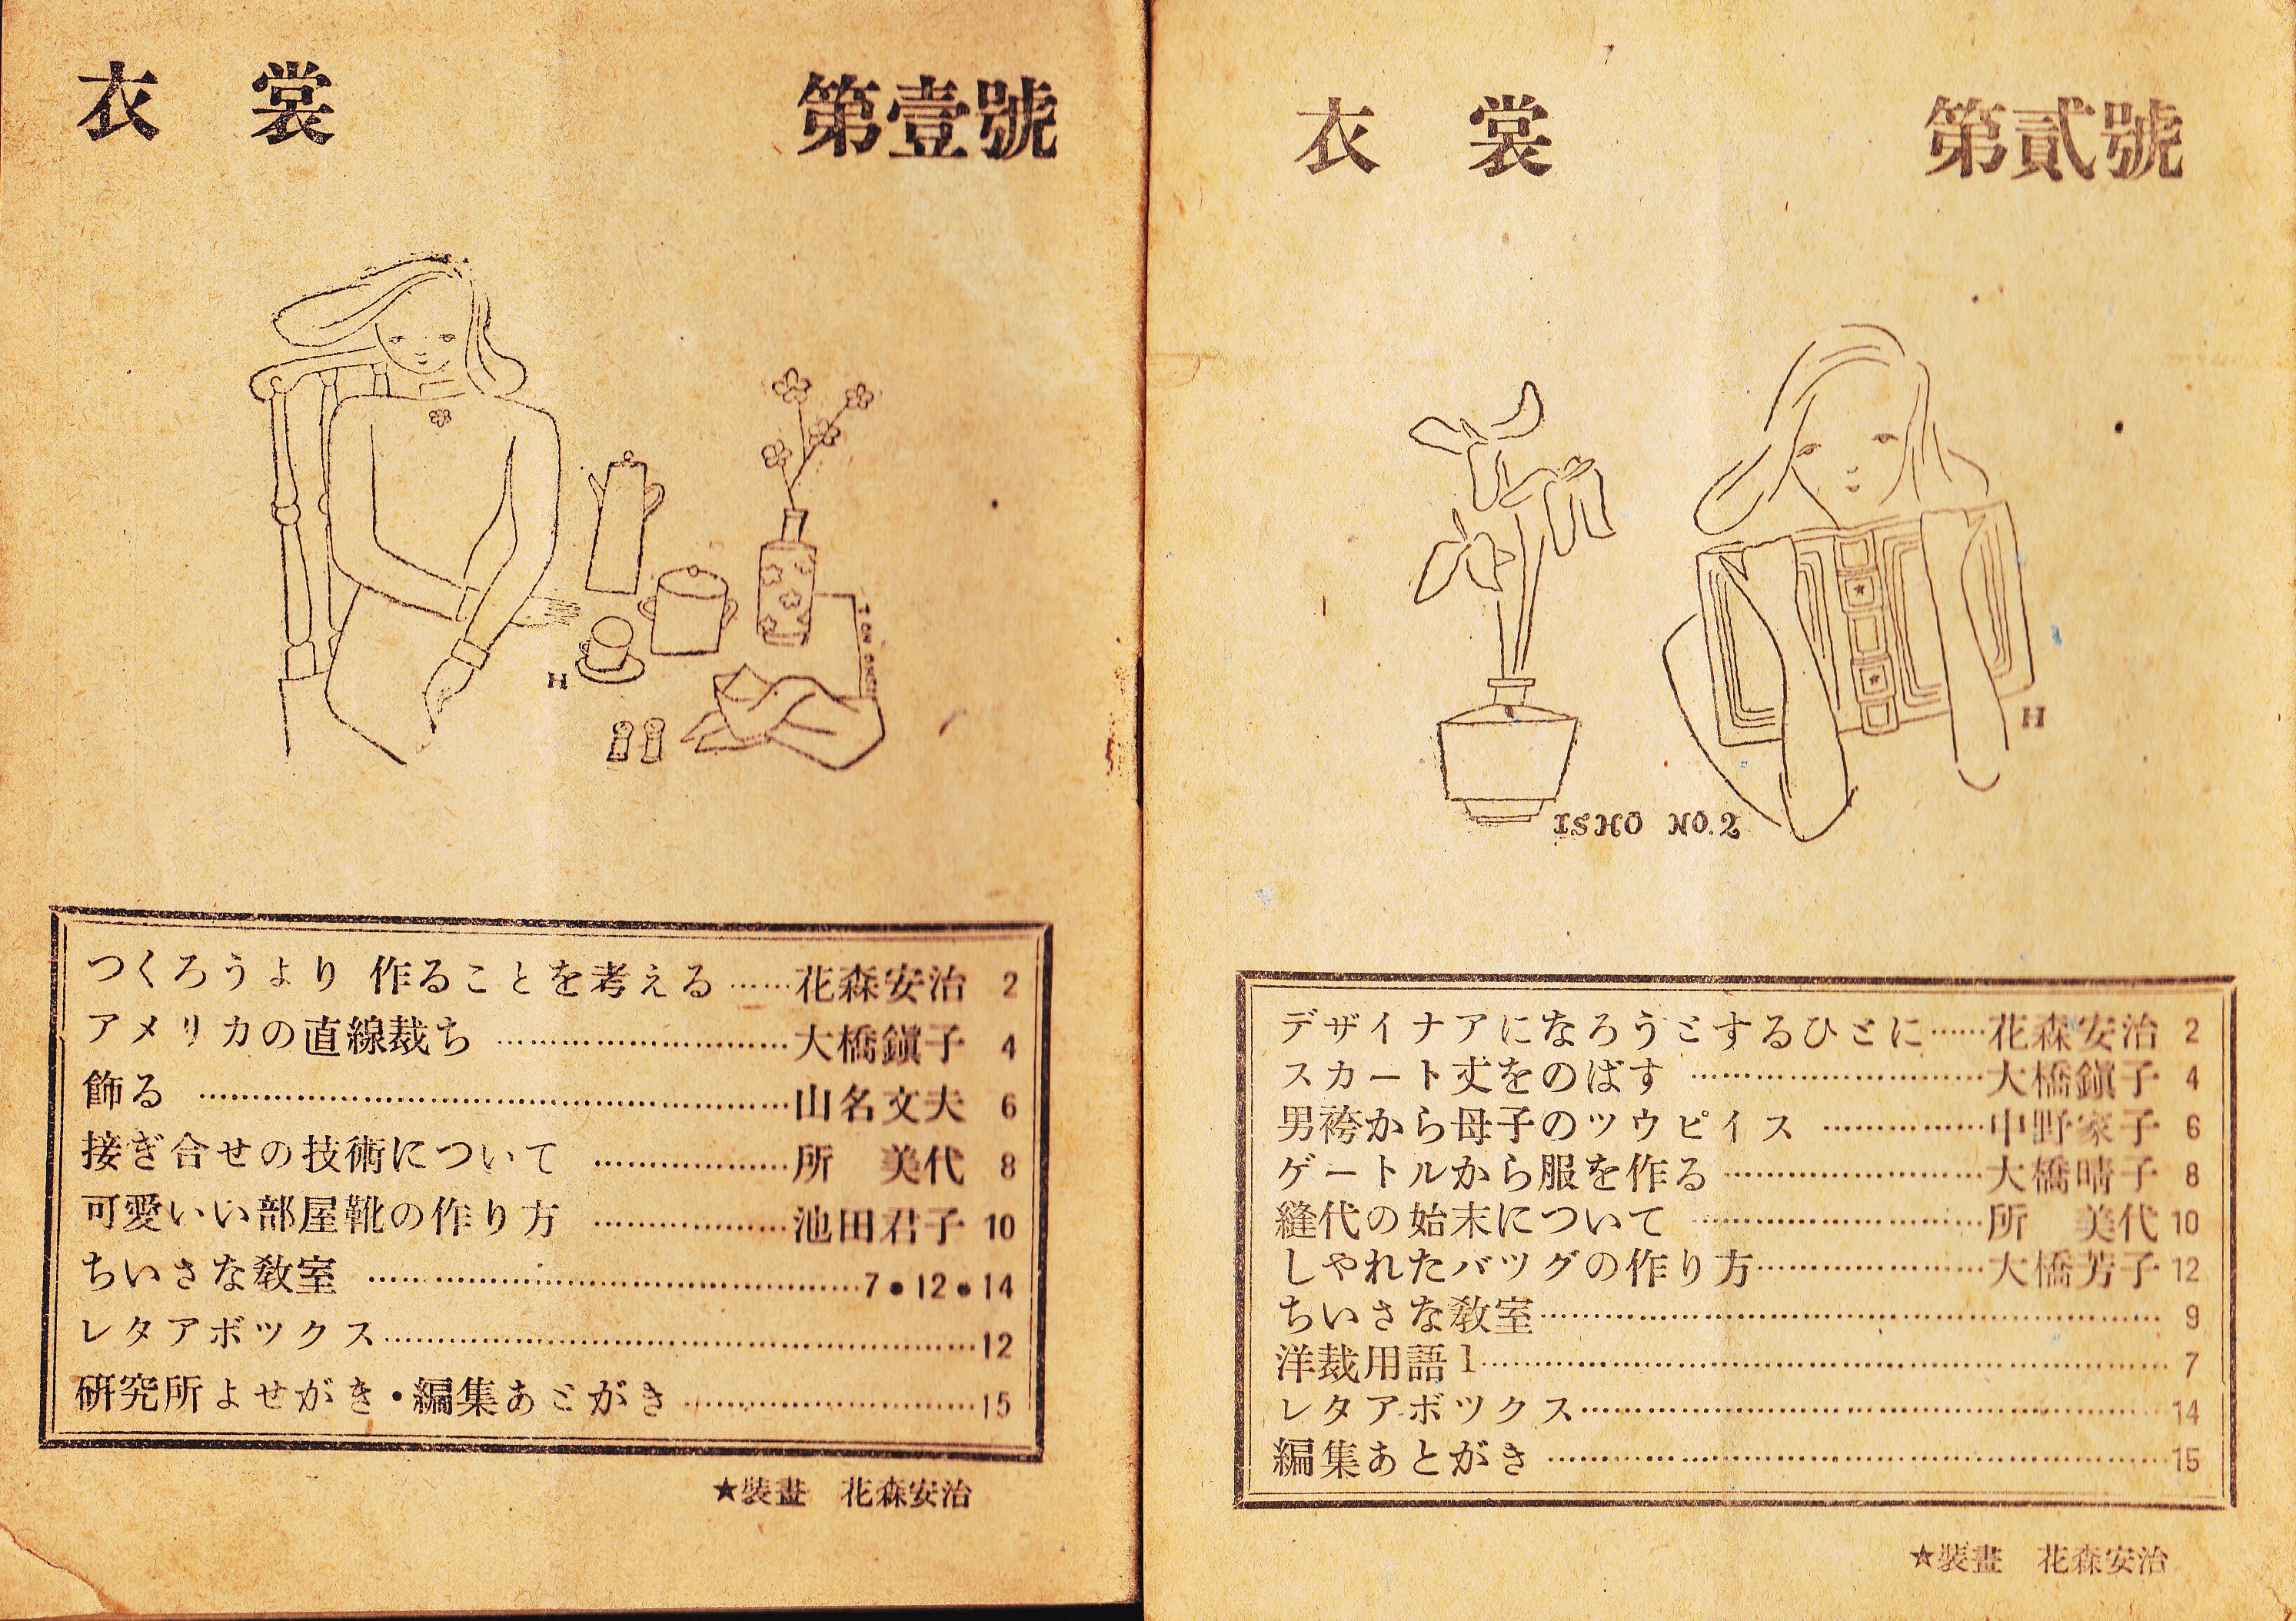 衣 裳
第壹號
H
つくろうより 作ることを考える……花森安治 2
アメリカの直線裁ち………大橋鎭子 4
飾る………山名文夫 6
接ぎ合せの技術について………所 美代 8
可愛いい部屋靴の作り方………池田君子 10
ちいさな教室………7・12・14
レタアボツクス………12
研究所よせがき・編集あとがき………15
★裝畫 花森安治
衣 裳
第貳號
H
ISHO NO.2
デザイナアになろうとするひとに……花森安治 2
スカート丈をのばす………大橋鎭子 4
男袴から母子のツウピイス………中野家子 6
ゲートルから服を作る………大橋晴子 8
縫代の始末について………所 美代 10
しやれたバツグの作り方………大橋芳子 12
ちいさな教室………9
洋裁用語1………7
レタアボツクス………14
編集あとがき………15
★裝畫 花森安治